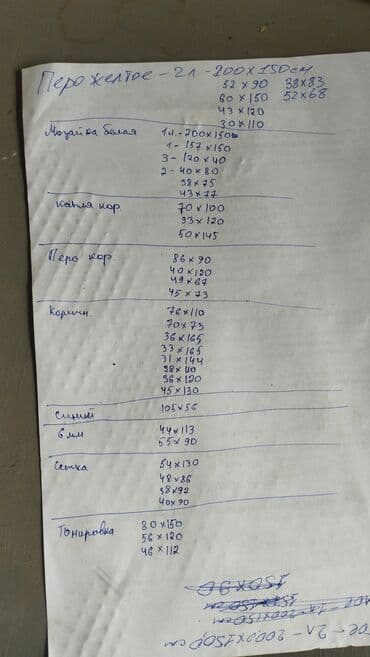 Перо желтое - 2л - 200x150см
52 x 90 38x83
60 x 150 52x68
43 x 120
30 x 110
Мозайка белая 1л.- 200x150см
1 - 157 x 150
3 - 120 x 40
2 - 40 x 80
38x75
43x77
капля кор. 70 x 100
33 x 120
50 x 145
Перо кор. 86 x 90
40 x 120
49 x 67
45 x 73
Коричн. 76 x 110
70 x 73
36 x 165
33 x 165
31 x 144
38 x 110
36 x 120
45 x 130
Синий 105 x 56
6 мм 44 x 113
55 x 90
Сетка 54 x 130
48 x 86
38 x 92
40 x 90
Тонировка 80 x 150
56 x 120
46 x 112
150x90
- 2л - 2000x1500 см